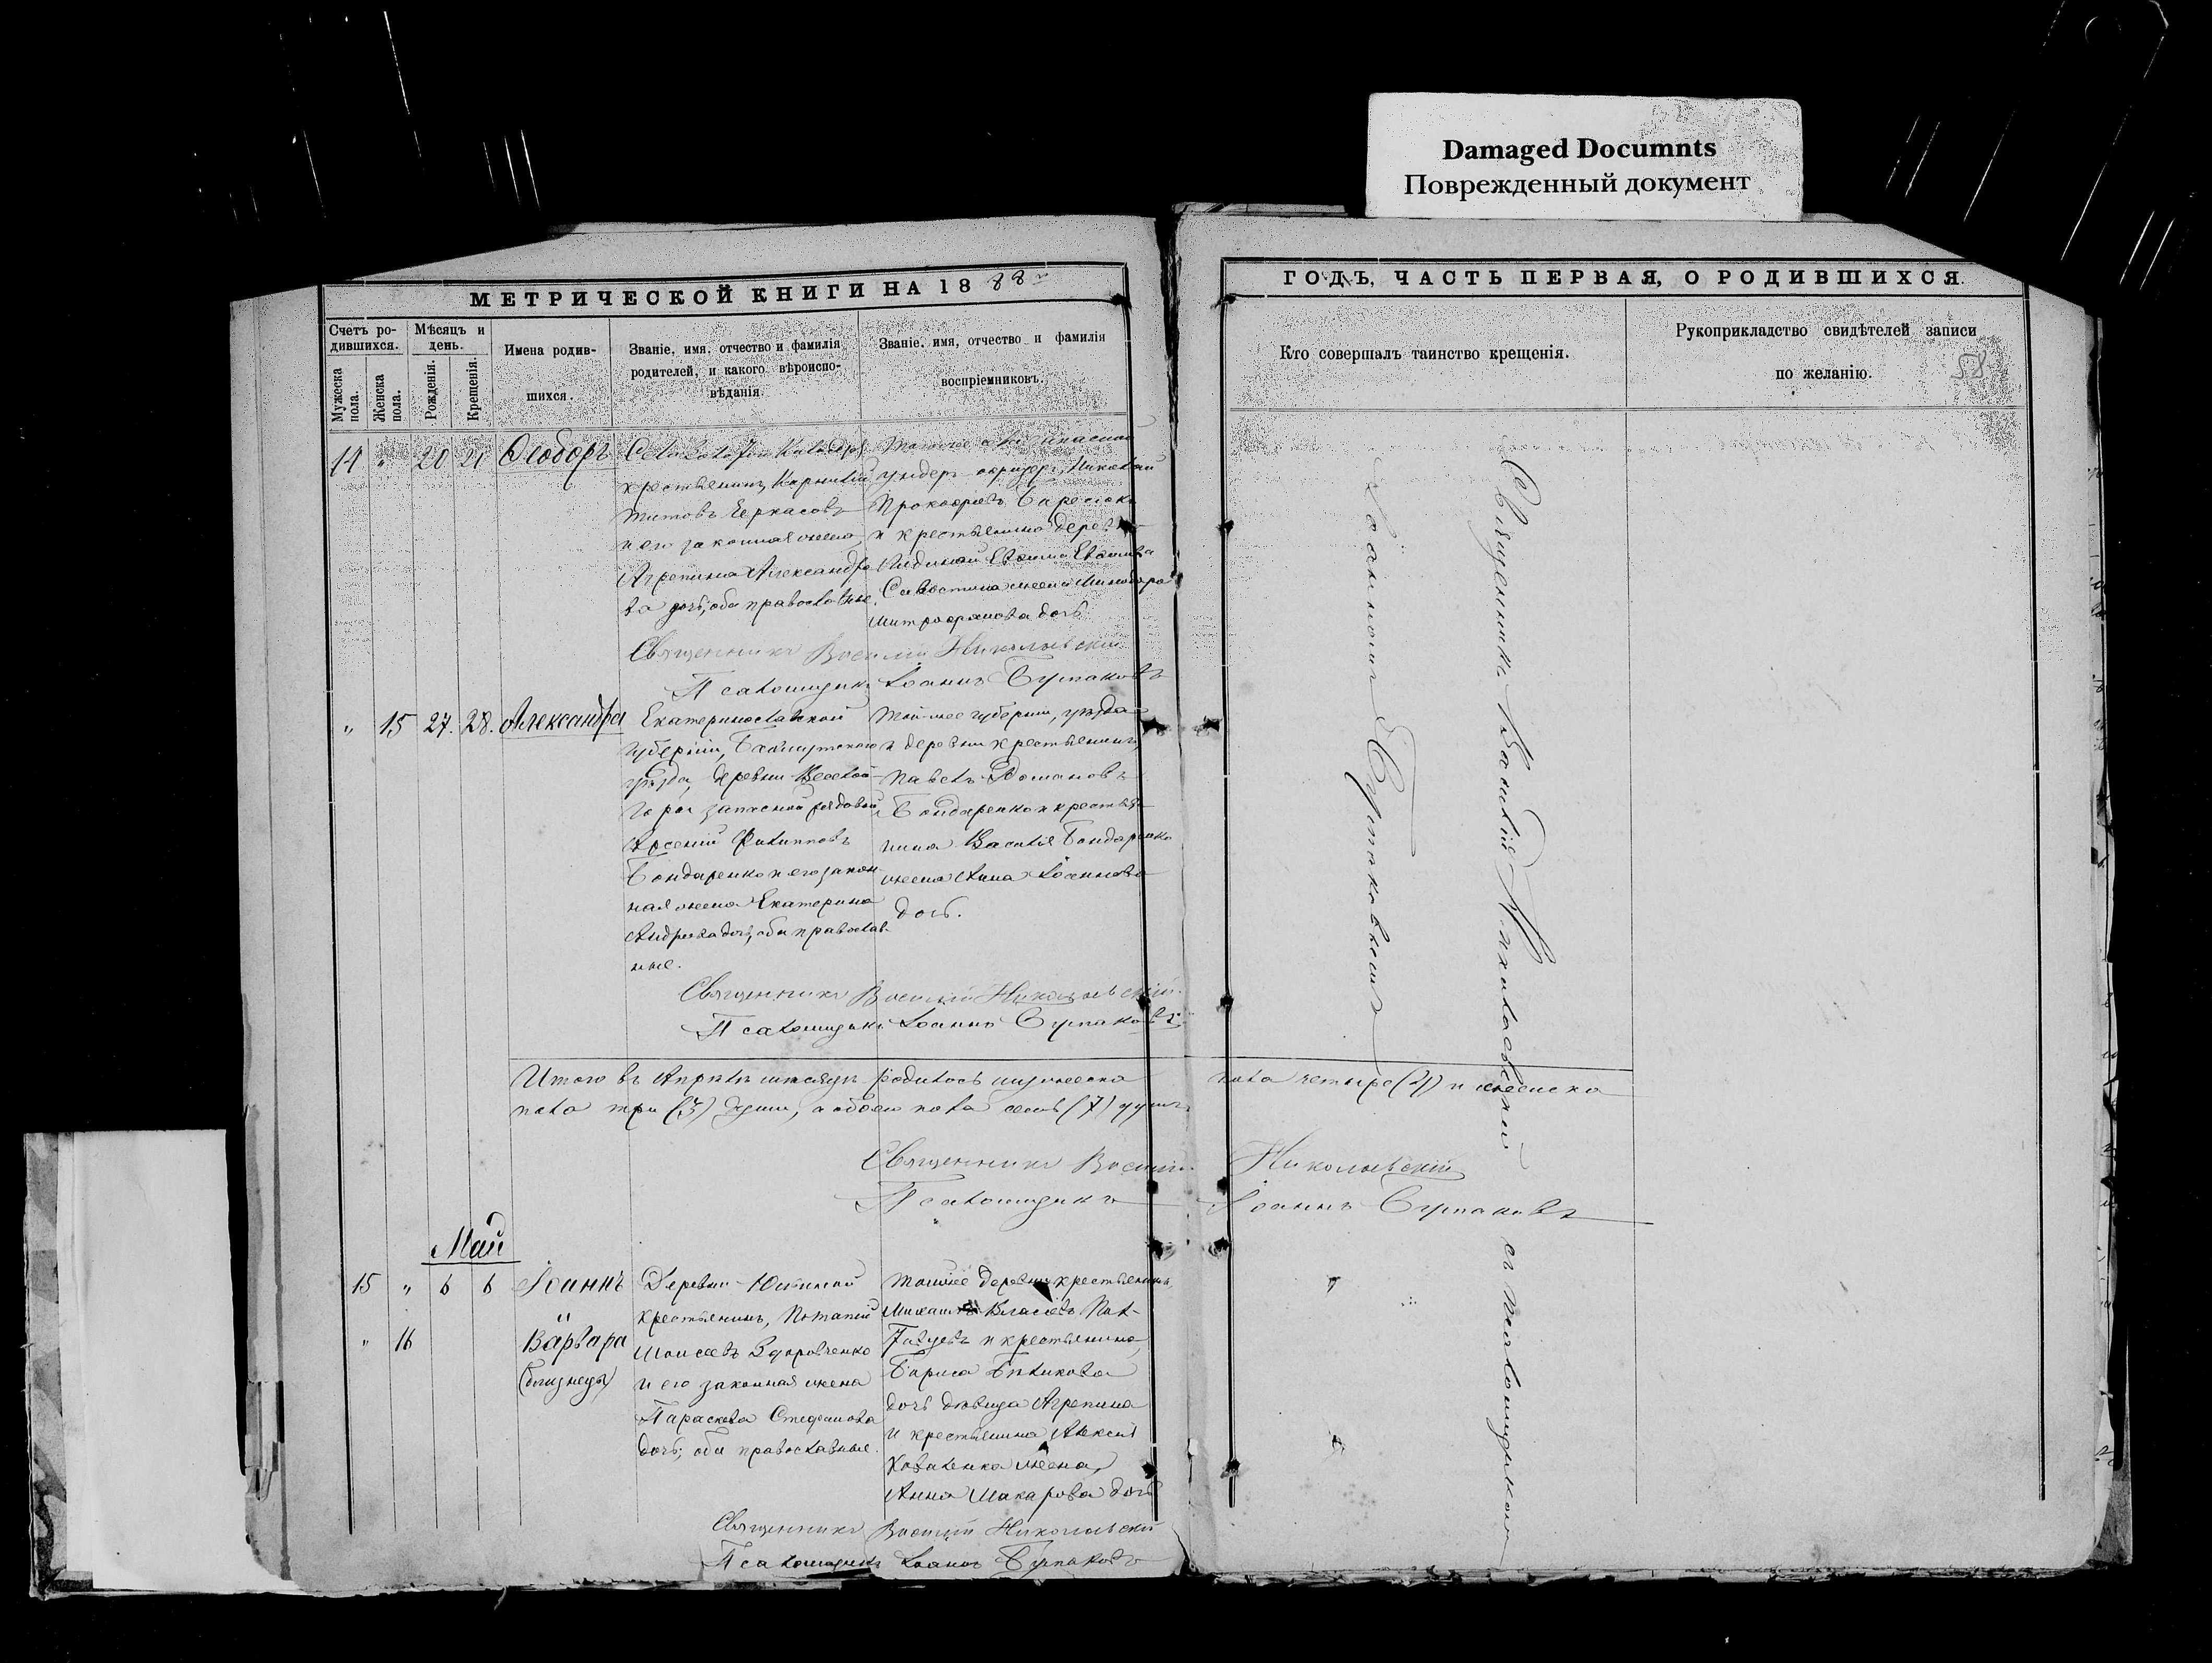 Damaged Documnts
Поврежденный документ
МЕТРИЧЕСКОЙ КНИГИ НА 1888
ГОДЪ, ЧАСТЬ ПЕРВАЯ, О РОДИВШИХСЯ.
Счетъ ро-
дившихся.
Мужеска
пола.
Женска
пола.
Мѣсяцъ и
день.
Рожденія.
Крещенія.
Имена родив-
шихся.
Званіе, имя, отчество и фамилія
родителей, и какого вѣроиспо-
вѣданія.
Званіе, имя, отчество и фамилія
воспріемниковъ.
Кто совершалъ таинство крещенія.
Рукоприкладство свидѣтелей записи
по желанію.
58
14 " 20 21 Ѳеодоръ
крестьянинъ, Корнилій
Титовъ Черкасовъ
и его законная жена,
Агрепина Александро
ва дочь, оба православные.
запасной
ундеръ-офицеръ, Николай
Прокофіевъ
и крестьянина
жена
Митрофанова дочь
Священникъ Василій Николаевскій
Псаломщикъ Іоаннъ Бурлаковъ
" 15 27. 28. Александра
Екатеринославской
губерніи, Бахмутскаго
уѣзда, деревни Веселой
Горы запасной рядовой
Арсеній Филипповъ
Бондаренко и его закон
ная жена Екатерина
Андреева дочь, оба православ-
ные.
Той-же губерніи, уѣзда
и деревни крестьянинъ
Павелъ Романовъ
Бондаренко и крестья-
нина Василія Бондаренка
жена Анна Іоаннова
дочь.
Священникъ Василій Николаевскій
Псаломщикъ Іоаннъ Бурлаковъ
Итого въ Апрѣлѣ мѣсяцѣ родилось мужеска пола четыре (4) и женска
пола три (3) души, а обоего пола семь (7) душъ
Священникъ Василій Николаевскій
Псаломщикъ Іоаннъ Бурлаковъ
Май
15 " 6 6 Іоаннъ
"
" 16 Варвара
(близнецы)
Деревни Юлиной
крестьянинъ, Потапій
Моисеевъ
и его законная жена
Параскева Стефанова
дочь; оба православные.
Той же деревни крестьянинъ
Михаилъ Власіевъ
и крестьянина
Бориса
дочь дѣвица Агрепина
и крестьянина Алексія
Коваленка жена,
Анна Макарова дочь
Священникъ Василій Николаевскій
Псаломщикъ Іоаннъ Бурлаковъ
Священникъ Василій Николаевскій съ псаломщикомъ
Іоанномъ Бурлаковымъ